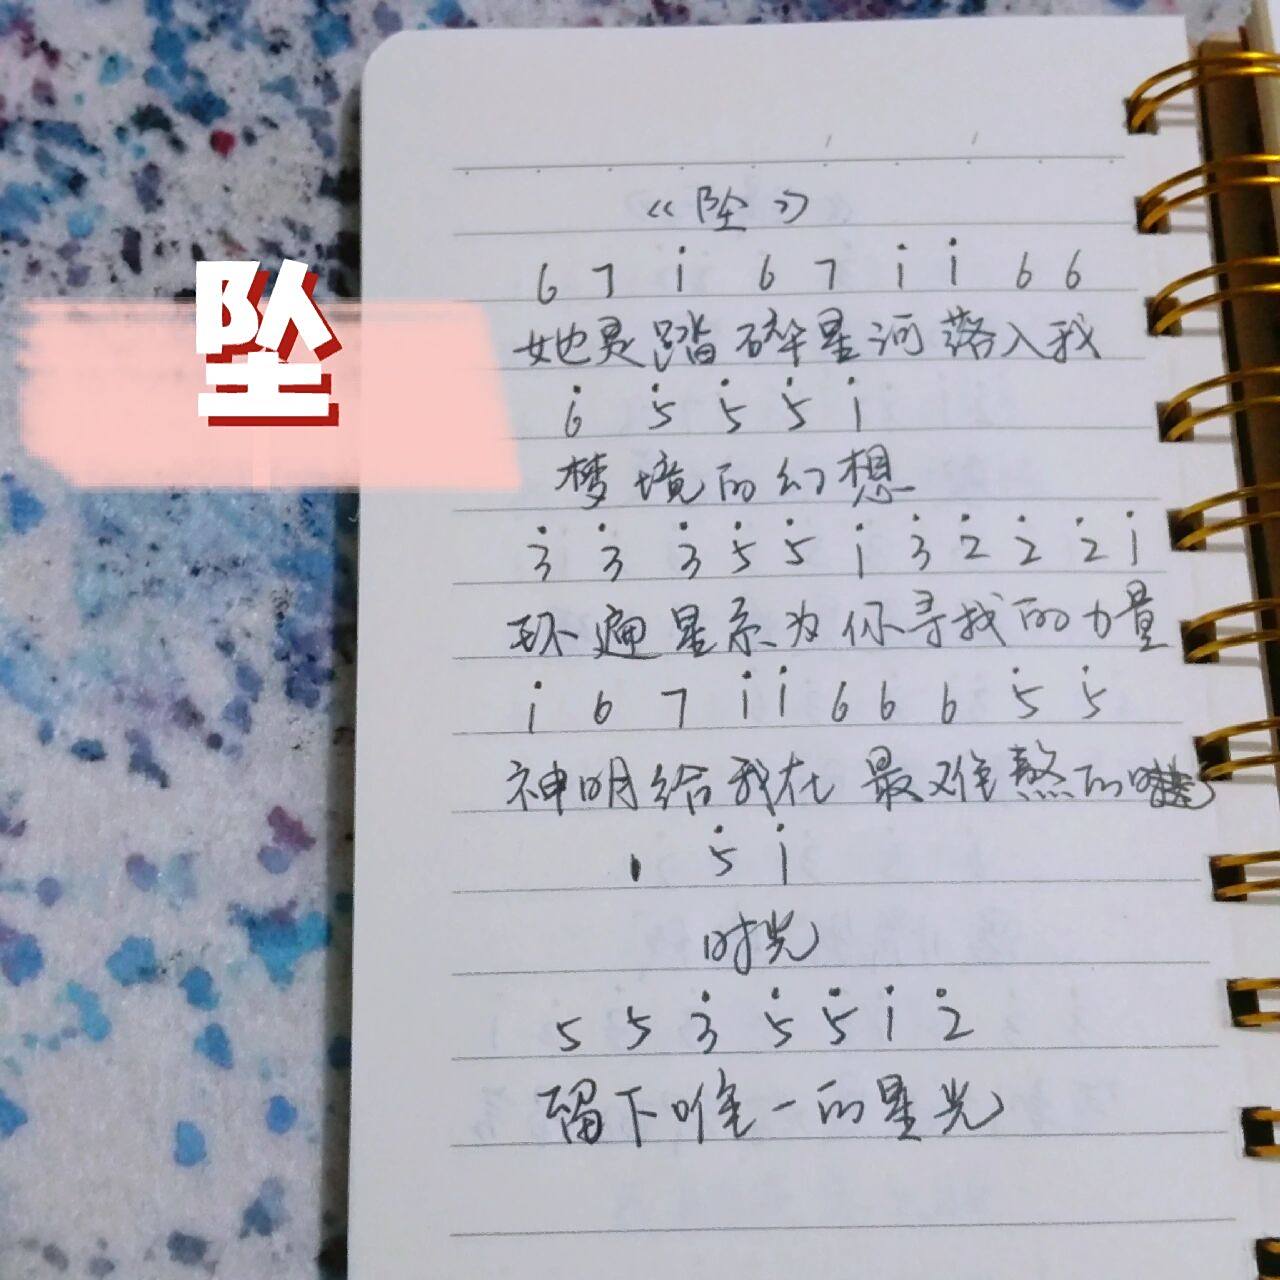 坠
《坠》
6 7 i 6 7 i i 6 6
她是踏碎星河落入我
6̇ 5̇ 5̇ 5̇ i
梦境的幻想
3̇ 3̇ 3̇ 5̇ 5̇ i 3̇ 2̇ 2̇ 2̇ i
环遍星系为你寻找的力量
i 6 7 i i 6 6 6 5̇ 5̇
神明给我在最难熬的
5̇ i
时光
5 5 3̇ 5̇ 5̇ i 2̇
留下唯一的星光